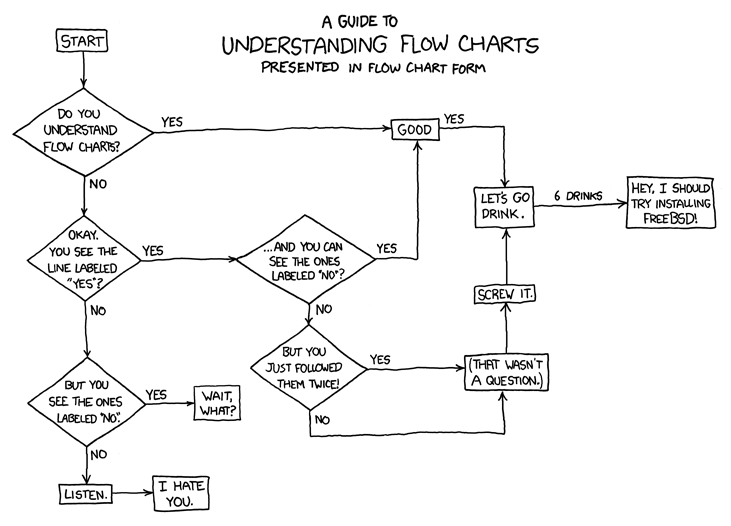 A GUIDE TO
UNDERSTANDING FLOW CHARTS
PRESENTED IN FLOW CHART FORM
START
DO YOU
UNDERSTAND
FLOW CHARTS?
YES
GOOD
YES
NO
LET'S GO
DRINK.
6 DRINKS
HEY, I SHOULD
TRY INSTALLING
FREEBSD!
OKAY.
YOU SEE THE
LINE LABELED
"YES"?
YES
...AND YOU CAN
SEE THE ONES
LABELED "NO"?
YES
NO
NO
SCREW IT.
BUT YOU
JUST FOLLOWED
THEM TWICE!
YES
(THAT WASN'T
A QUESTION.)
NO
BUT YOU
SEE THE ONES
LABELED "NO".
YES
WAIT,
WHAT?
NO
LISTEN.
I HATE
YOU.